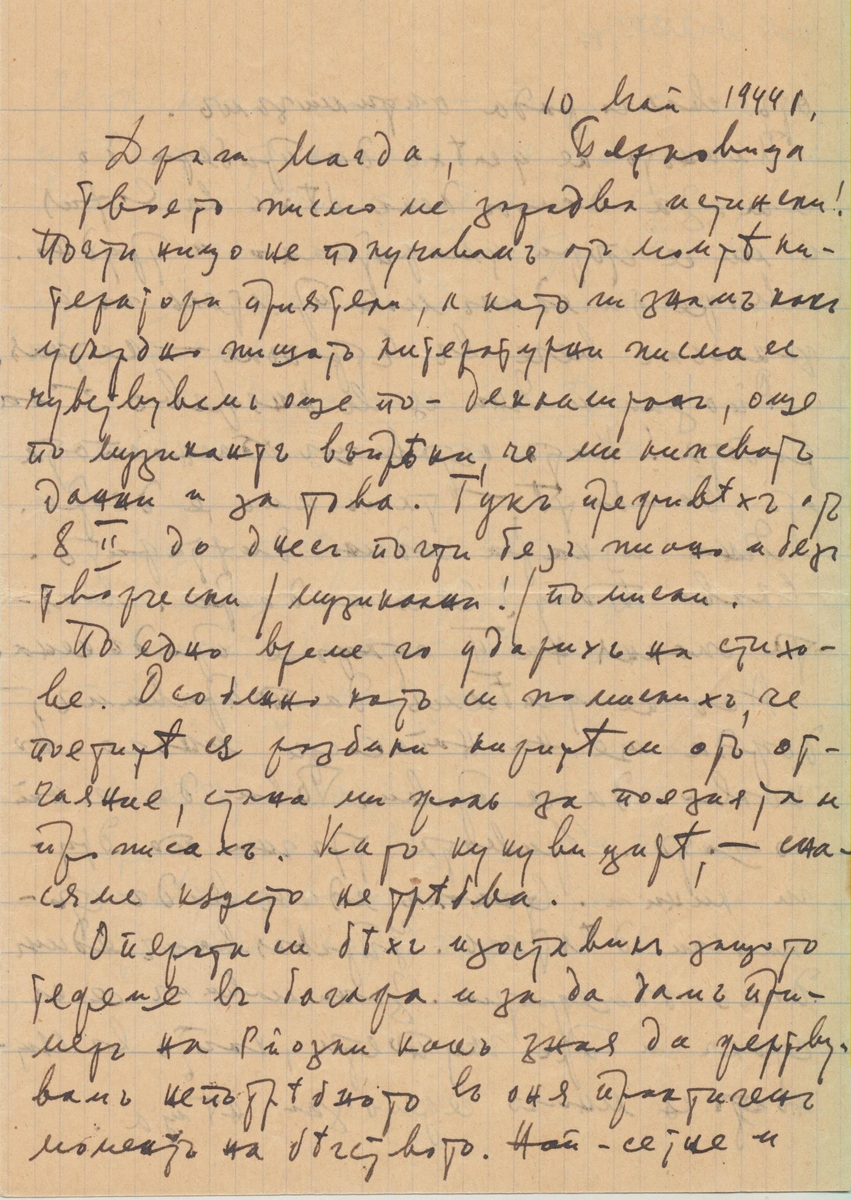 10 Май 1944 г.
Драга Магда, Берковица
Твоето писмо ме зарадва истински!
Почти нищо не получавамъ отъ моитѣ ли-
тератори приятели, а като ги знамъ какъ
усърдно пишатъ литературни писма се
чувствувамъ още по-
по музикантъ въпрѣки, че ми липсватъ
данни и за това. Тукъ преживѣхъ отъ
8 II до днесъ почти безъ пиано и безъ
творчески /музикални!/ помисли.
По едно време го ударихъ на стихо-
ве. Особенно като си помислихъ, че
поетитѣ сѫ разбили лиритѣ си отъ от-
чаяние, стана ми жаль за поезията и
прописахъ. Като кукувицитѣ, — сна-
-сяме където не трѣбва.
Операта си бѣхъ изоставилъ защото
тежеше въ багажа и за да дамъ при-
меръ на Рйозки какъ зная да жертву-
вамъ непотрѣбното въ оня практиченъ
моментъ на бѣгството. Най-сетне и